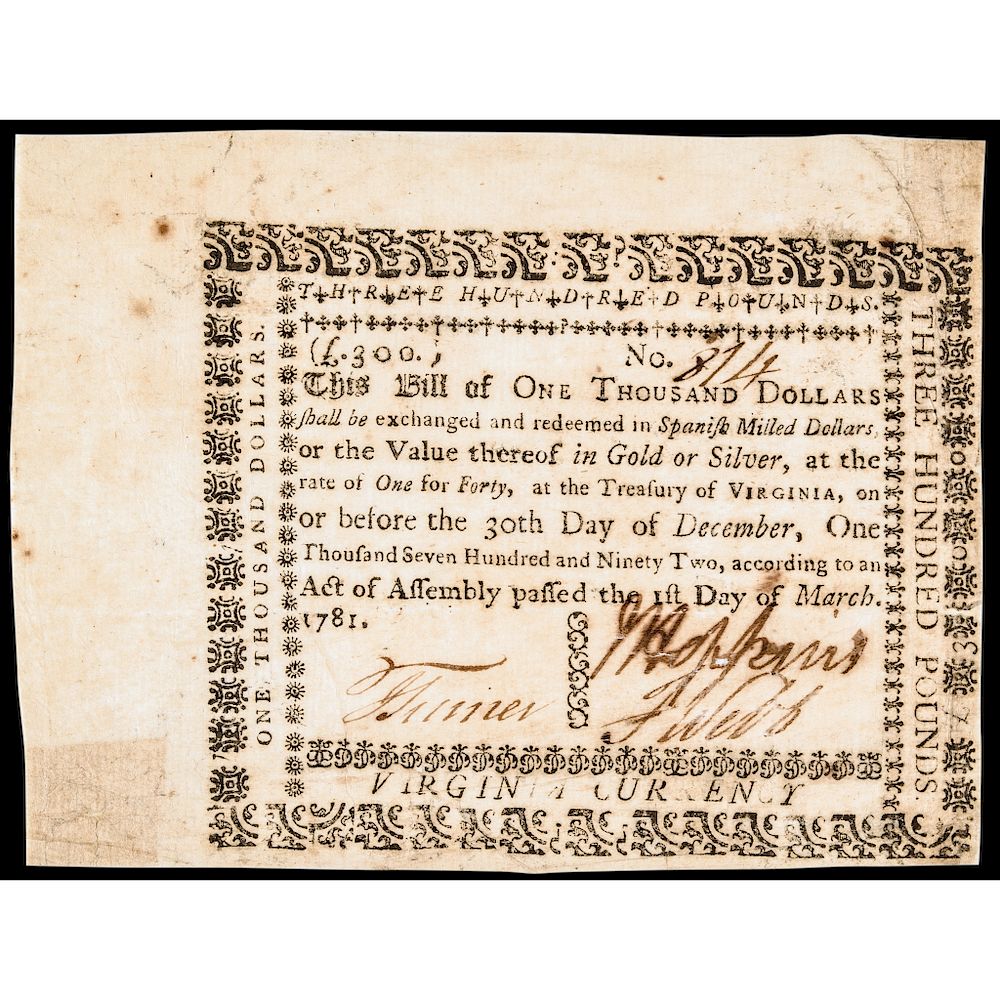 THREE HUNDRED POUNDS.
(£.300.) No. 814
This Bill of ONE THOUSAND DOLLARS
ſhall be exchanged and redeemed in Spaniſh Milled Dollars,
or the Value thereof in Gold or Silver, at the
rate of One for Forty, at the Treaſury of VIRGINIA, on
or before the 30th Day of December, One
Thouſand Seven Hundred and Ninety Two, according to an
Act of Aſſembly paſſed the 1ſt Day of March.
1781.
JHopkins
Turner
FWebb
VIRGINIA CURRENCY
ONE THOUSAND DOLLARS.
THREE HUNDRED POUNDS.